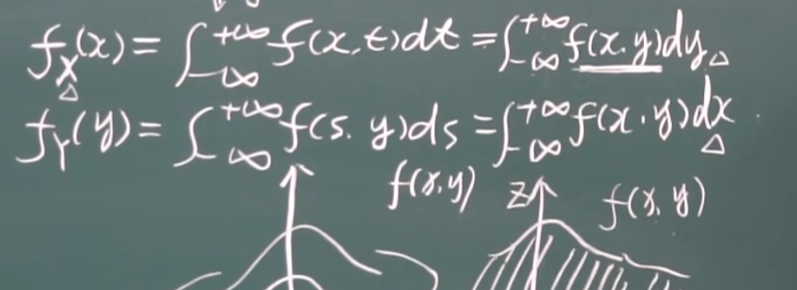 f_X(x) = ∫_{-∞}^{+∞} f(x,t)dt = ∫_{-∞}^{+∞} f(x.y)dy
f_Y(y) = ∫_{-∞}^{+∞} f(s.y)ds = ∫_{-∞}^{+∞} f(x.y)dx.
f(x,y) z f(x,y)